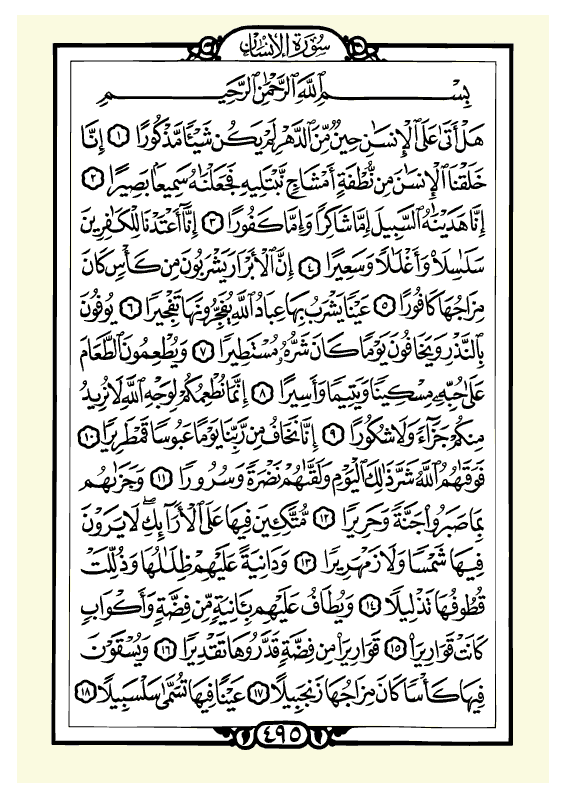 سُورَةُ الإِنسَانِ
بِسْمِ ٱللَّهِ ٱلرَّحْمَٰنِ ٱلرَّحِيمِ
هَلْ أَتَىٰ عَلَى ٱلْإِنسَٰنِ حِينٌ مِّنَ ٱلدَّهْرِ لَمْ يَكُن شَيْـًٔا مَّذْكُورًا ١ إِنَّا
خَلَقْنَا ٱلْإِنسَٰنَ مِن نُّطْفَةٍ أَمْشَاجٍ نَّبْتَلِيهِ فَجَعَلْنَٰهُ سَمِيعًۢا بَصِيرًا ٢
إِنَّا هَدَيْنَٰهُ ٱلسَّبِيلَ إِمَّا شَاكِرًا وَإِمَّا كَفُورًا ٣ إِنَّآ أَعْتَدْنَا لِلْكَٰفِرِينَ
سَلَٰسِلَا۟ وَأَغْلَٰلًا وَسَعِيرًا ٤ إِنَّ ٱلْأَبْرَارَ يَشْرَبُونَ مِن كَأْسٍ كَانَ
مِزَاجُهَا كَافُورًا ٥ عَيْنًا يَشْرَبُ بِهَا عِبَادُ ٱللَّهِ يُفَجِّرُونَهَا تَفْجِيرًا ٦ يُوفُونَ
بِٱلنَّذْرِ وَيَخَافُونَ يَوْمًا كَانَ شَرُّهُۥ مُسْتَطِيرًا ٧ وَيُطْعِمُونَ ٱلطَّعَامَ
عَلَىٰ حُبِّهِۦ مِسْكِينًا وَيَتِيمًا وَأَسِيرًا ٨ إِنَّمَا نُطْعِمُكُمْ لِوَجْهِ ٱللَّهِ لَا نُرِيدُ
مِنكُمْ جَزَآءً وَلَا شُكُورًا ٩ إِنَّا نَخَافُ مِن رَّبِّنَا يَوْمًا عَبُوسًا قَمْطَرِيرًا ١٠
فَوَقَىٰهُمُ ٱللَّهُ شَرَّ ذَٰلِكَ ٱلْيَوْمِ وَلَقَّىٰهُمْ نَضْرَةً وَسُرُورًا ١١ وَجَزَىٰهُم
بِمَا صَبَرُوا۟ جَنَّةً وَحَرِيرًا ١٢ مُّتَّكِـِٔينَ فِيهَا عَلَى ٱلْأَرَآئِكِ ۖ لَا يَرَوْنَ
فِيهَا شَمْسًا وَلَا زَمْهَرِيرًا ١٣ وَدَانِيَةً عَلَيْهِمْ ظِلَٰلُهَا وَذُلِّلَتْ
قُطُوفُهَا تَذْلِيلًا ١٤ وَيُطَافُ عَلَيْهِم بِـَٔانِيَةٍ مِّن فِضَّةٍ وَأَكْوَابٍ
كَانَتْ قَوَارِيرَا۠ ١٥ قَوَارِيرَا۟ مِن فِضَّةٍ قَدَّرُوهَا تَقْدِيرًا ١٦ وَيُسْقَوْنَ
فِيهَا كَأْسًا كَانَ مِزَاجُهَا زَنجَبِيلًا ١٧ عَيْنًا فِيهَا تُسَمَّىٰ سَلْسَبِيلًا ١٨
٤٩٥